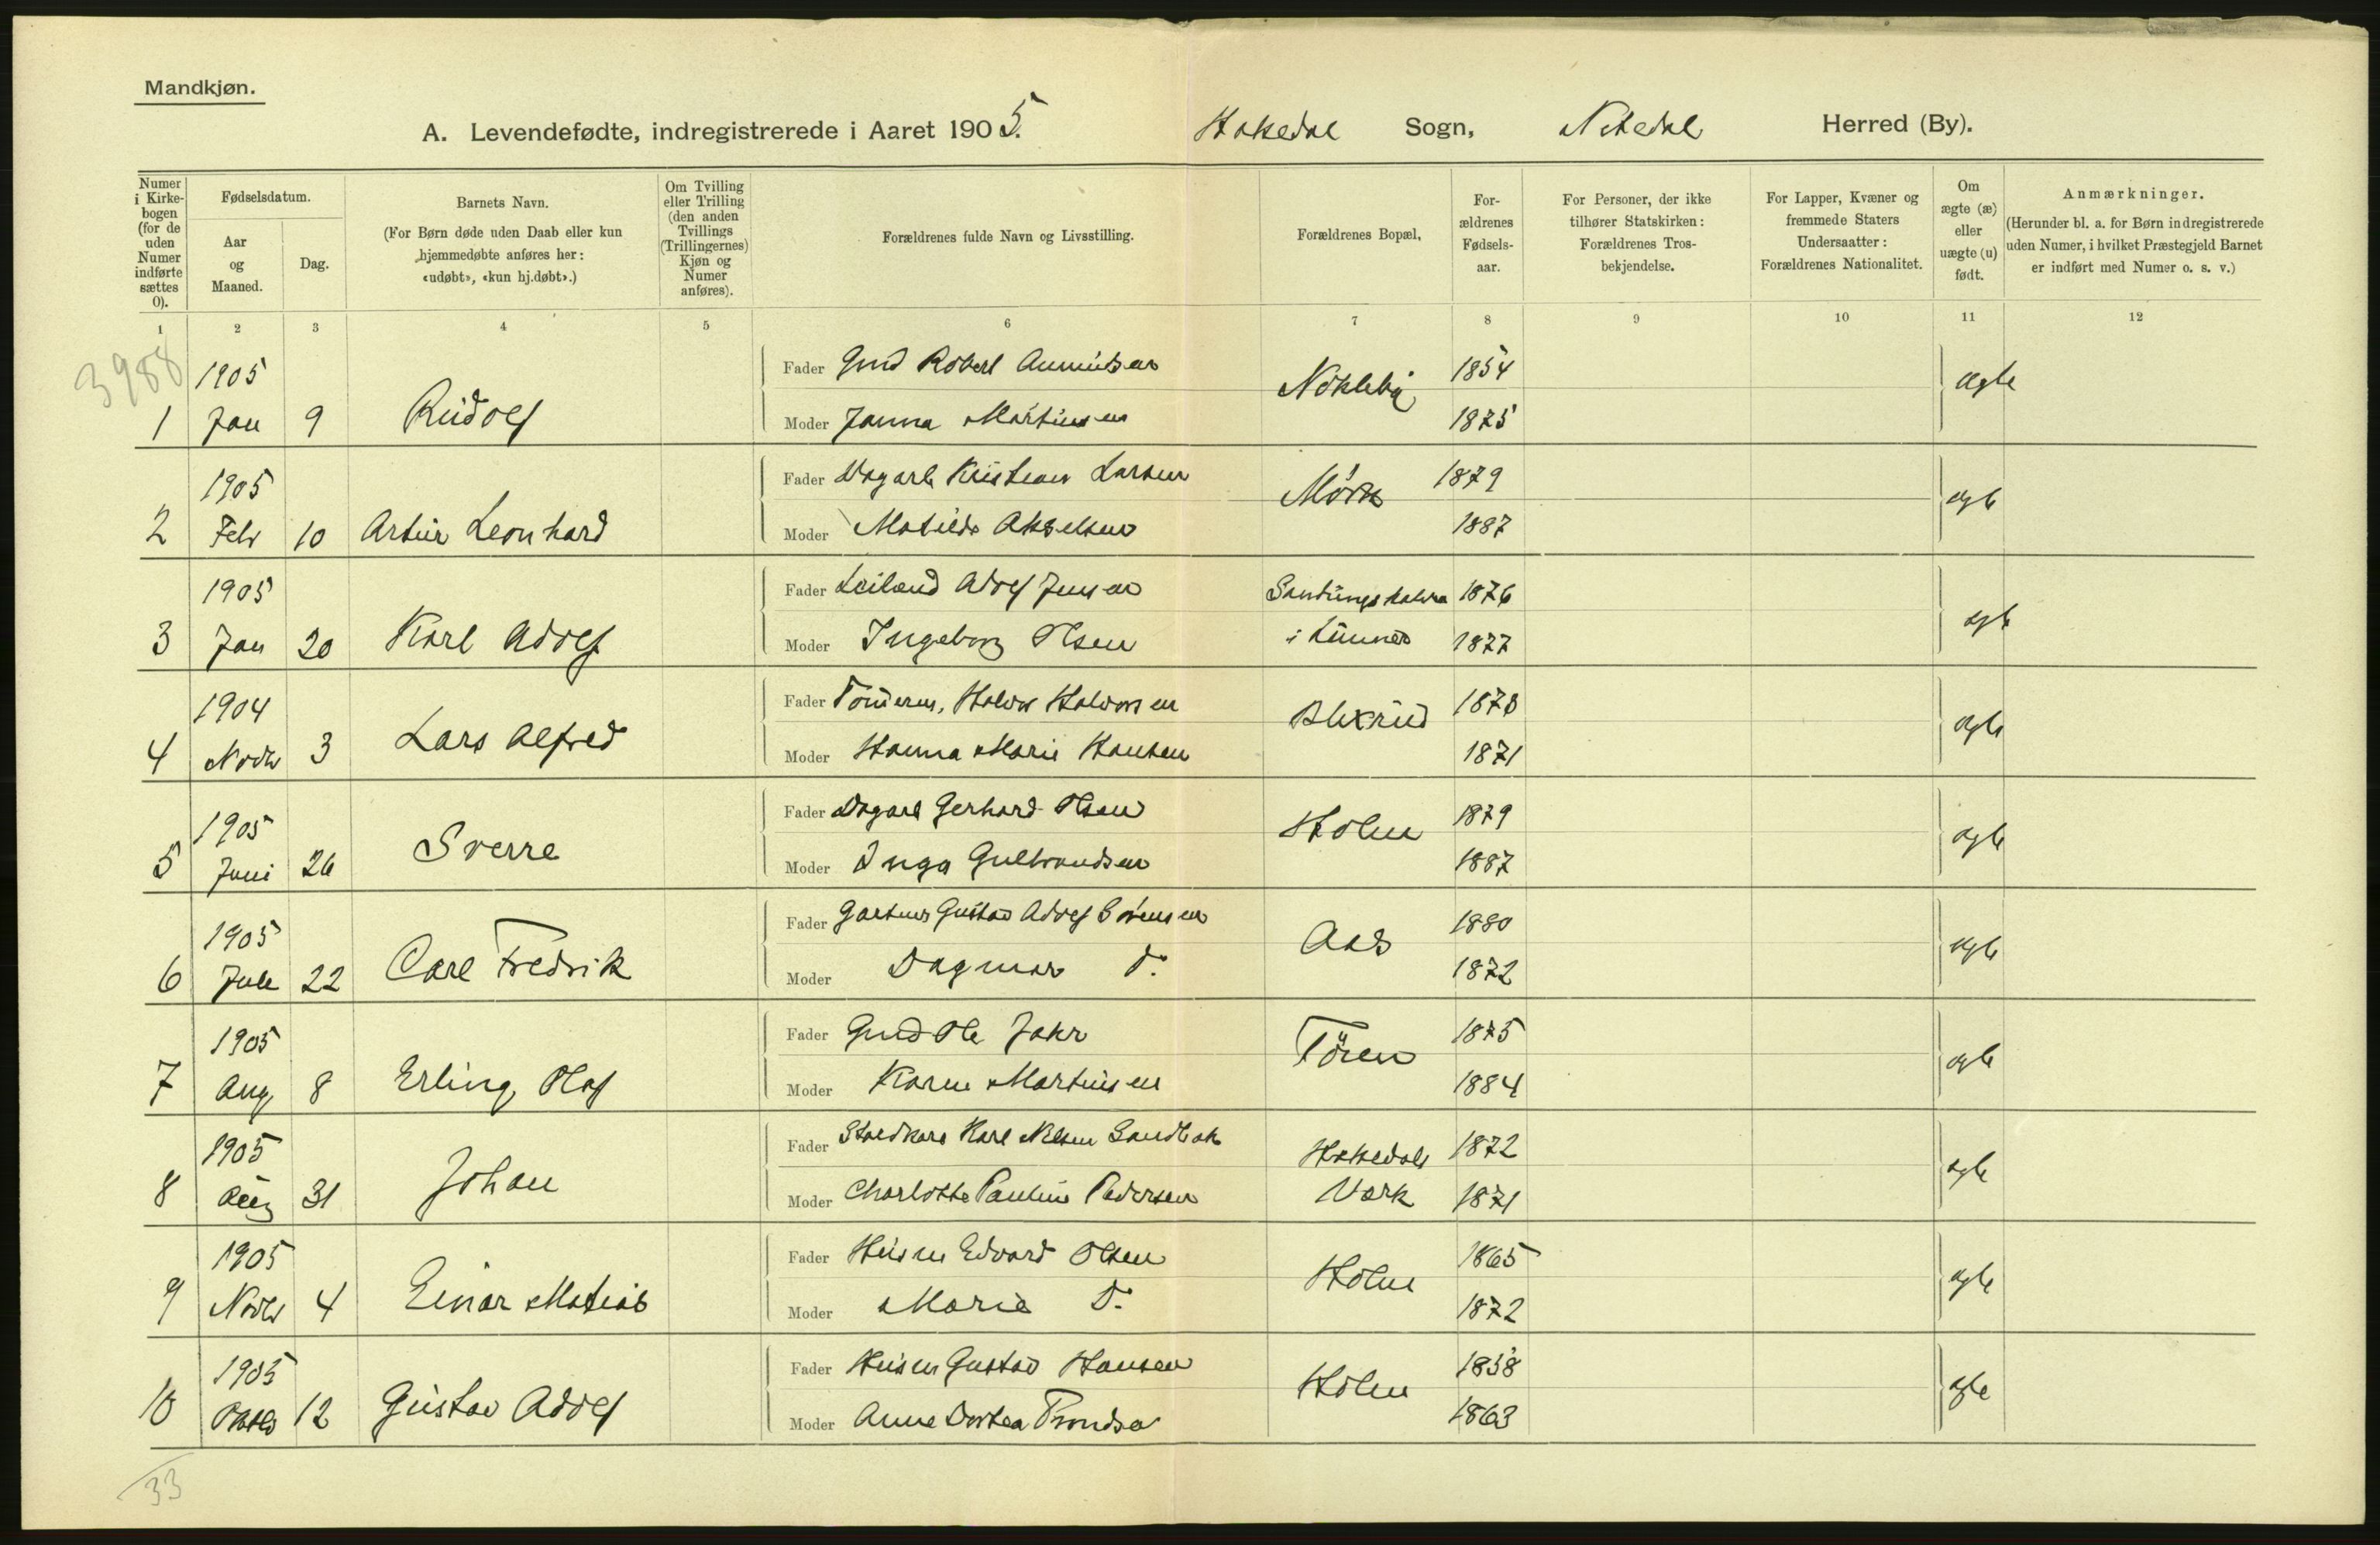 Mandkjøn.
A. Levendefødte, indregistrerede i Aaret 1905. Hakedal Sogn, Nitedal Herred (By).
Numer i Kirkebogen (for de uden Numer indførte sættes 0).
Fødselsdatum.
Aar og Maaned.
Dag.
Barnets Navn.
(For Børn døde uden Daab eller kun hjemmedøbte anføres her: «udøbt», «kun hj.døbt».)
Om Tvilling eller Trilling (den anden Tvillings (Trillingernes) Kjøn og Numer anføres).
Forældrenes fulde Navn og Livsstilling.
Forældrenes Bopæl,
For-ældrenes Fødsels-aar.
For Personer, der ikke tilhører Statskirken: Forældrenes Tros-bekjendelse.
For Lapper, Kvæner og fremmede Staters Undersaatter: Forældrenes Nationalitet.
Om ægte (æ) eller uægte (u) født.
Anmærkninger.
(Herunder bl. a. for Børn indregistrerede uden Numer, i hvilket Præstegjeld Barnet er indført med Numer o. s. v.)
1 2 3 4 5 6 7 8 9 10 11 12
3988
1905 Fader Gmd Robert 1854
1 Jan 9 Rudolf Moder Janna Martinsen 1875 ægte
1905 Fader Dagarb Kristian Larsen Mörk 1879
2 Febr 10 Artur Leonhard Moder Matilde Akselsen 1887 ægte
1905 Fader Adolf Jensen 1876
3 Jan 20 Karl Adolf Moder Ingeborg Olsen i Lunner 1877 ægte
1904 Fader Halvor Halvorsen 1878
4 Novbr 3 Lars Alfred Moder Hanna Marie Hansen 1871 ægte
1905 Fader Dagarb Gerhard Olsen Holm 1879
5 Juni 26 Sverre Moder Inga Gulbrandsen 1887 ægte
1905 Fader Gartner Gustav Adolf Sörensen Aas 1880
6 Juli 22 Carl Fredrik Moder Dagmar D: 1872 ægte
1905 Fader Gmd Ole Jahr Töien 1875
7 Aug 8 Erling Olaf Moder Karen Martinsen 1884 ægte
1905 Fader Staldkarl Karl Nilsen Sandbak Hakedals 1872
8 Aug 31 Johan Moder Charlotte Pauline Pedersen Værk 1871 ægte
1905 Fader Husm Edvard Olsen Holm 1865
9 Novbr 4 Einar Matias Moder Marie D: 1872 ægte
1905 Fader Husm Gustav Hansen Holm 1858
10 Oktbr 12 Gustav Adolf Moder Anne Dortea 1863 ægte
33